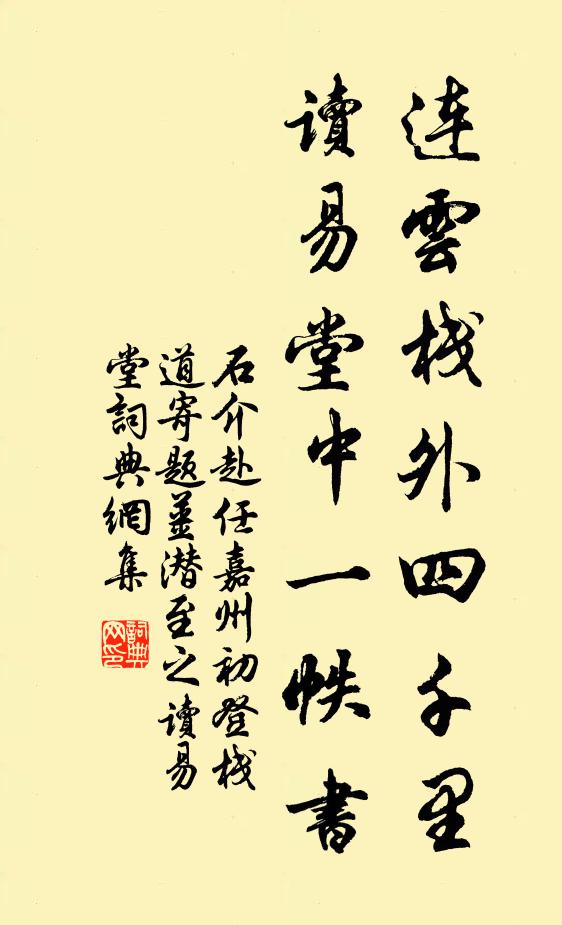 連雲栈外四千里
讀易堂中一帙書
石介赴任嘉州初登栈
道寄题薑潜至之讀易
堂詞典網集
詞典
网印